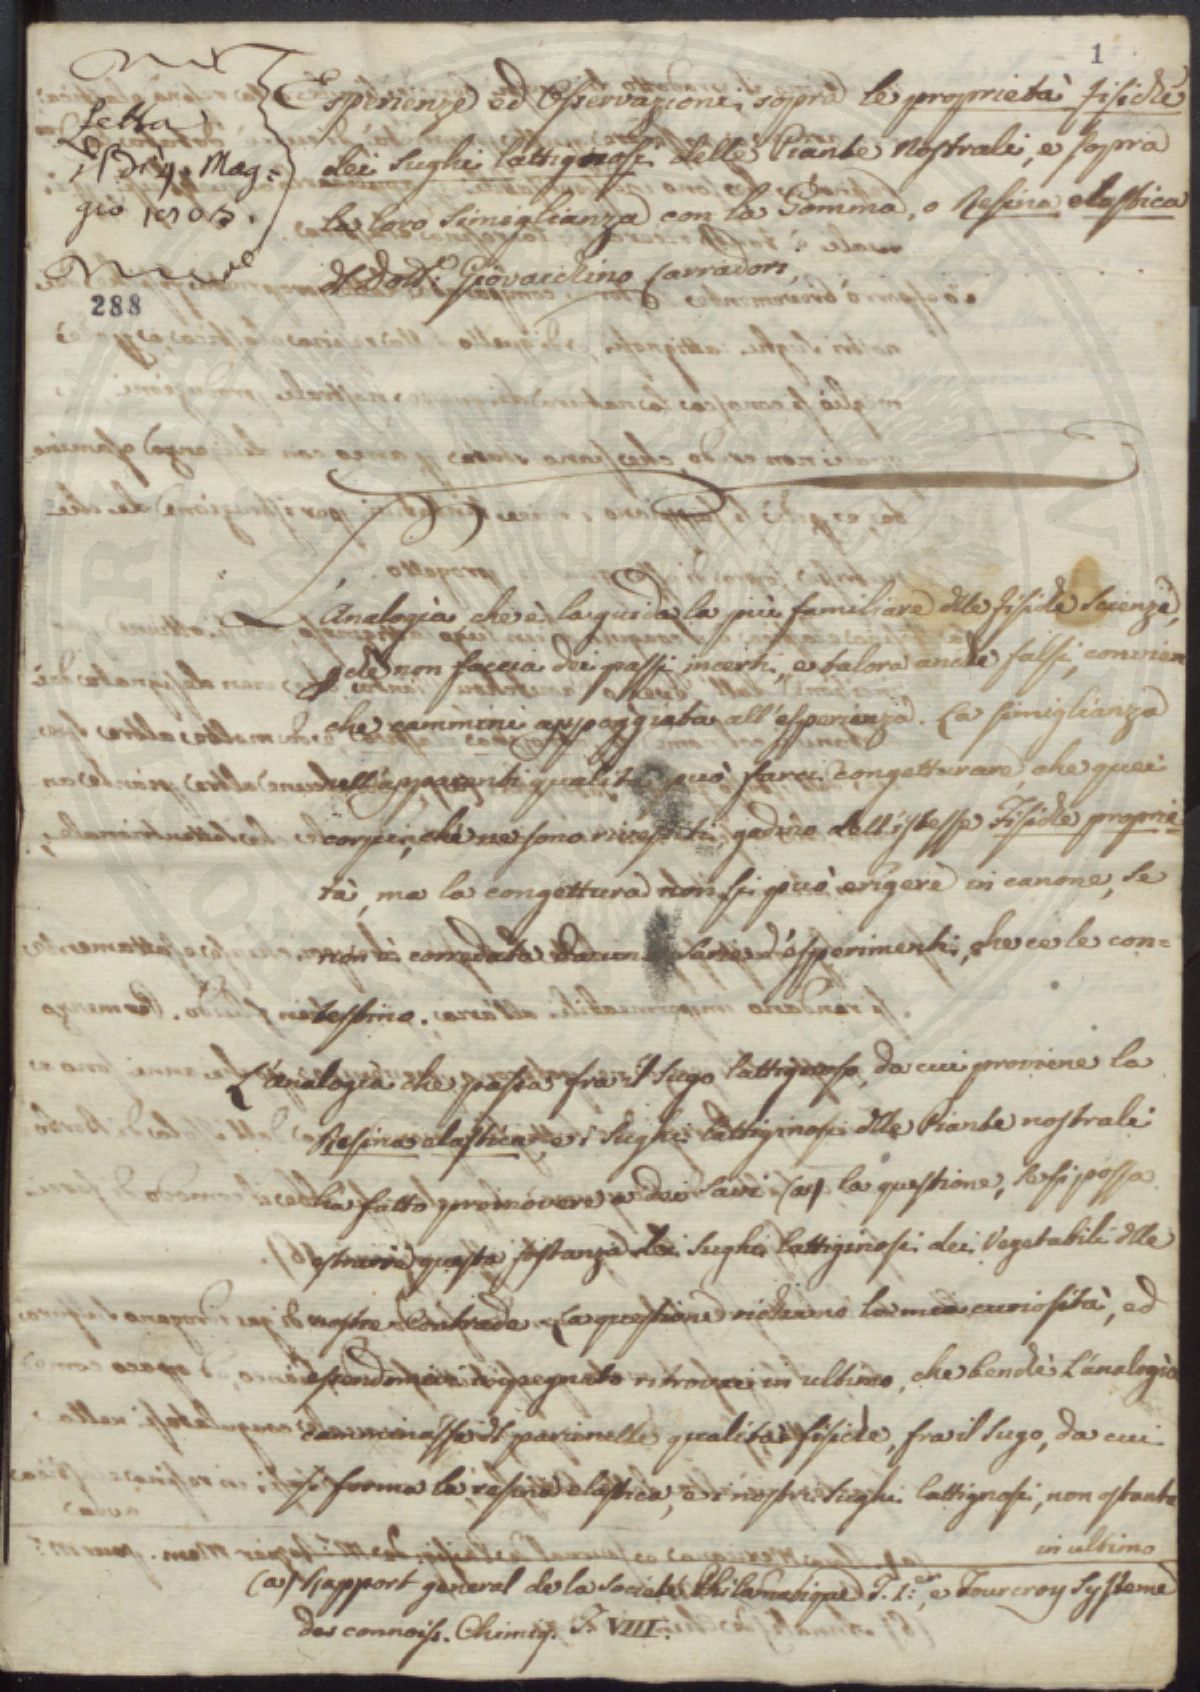 1
Letta
il Dì 4. Mag=
gio 1805.
288
Esperienze ed Osservazioni sopra le proprietà fisiche
dei Sughi lattiginosi delle Piante Nostrali, e sopra
la loro simiglianza con la Gomma, o Resina elastica
del Dott. Giovacchino Carradori,
L'Analogia che è la guida la più familiare delle fisiche Scienze,
pche non faccia dei passi incerti, e talora anche falsi, convien
che cammini appoggiata all'esperienza. La simiglianza
nell'apparenti qualità può farci congetturare che quei
corpi, che ne sono rivestiti, godino dell'istesse Fisiche proprie=
tà, ma la congettura non si può erigere in canone, se
non è corredata da una serie d'esperimenti, che ce le con=
testino.
L'Analogia che passa fra il Sugo lattiginoso, da cui proviene la
Resina elastica, e i Sughi lattiginosi delle Piante nostrali
ha fatto promovere a dei Savi (a) la questione, se si possa
estrarre questa sostanza dei Sughi lattiginosi dei Vegetabili delle
nostre Contrade. La questione richiamò la mia curiosità, ed
essendomici impegnato ritrovai in ultimo, che benchè l'analogia
camminasse del pari nelle qualità fisiche, fra il Sugo, da cui
si forma la resina elastica, e i nostri Sughi lattiginosi, non ostante
in ultimo
(a) Rapport general de la Societé Philomatique T. I.er, e Fourcroy Systeme
des connois. Chimiq. T. VIII.